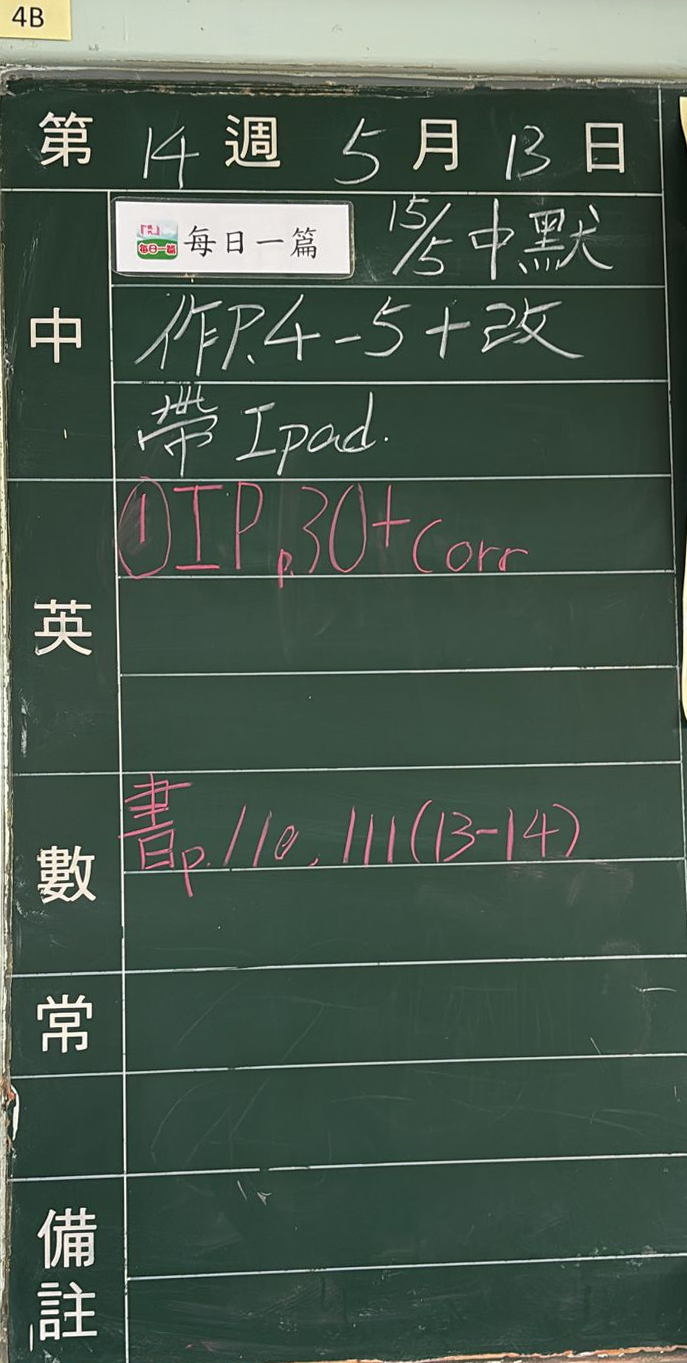 4B
第 14 週 5 月 13 日
中
每日一篇 每日一篇 15/5 中默
作P.4-5+改
帶 Ipad.
英
①IP p.30+corr
數
書p.110, 111(13-14)
常
備註